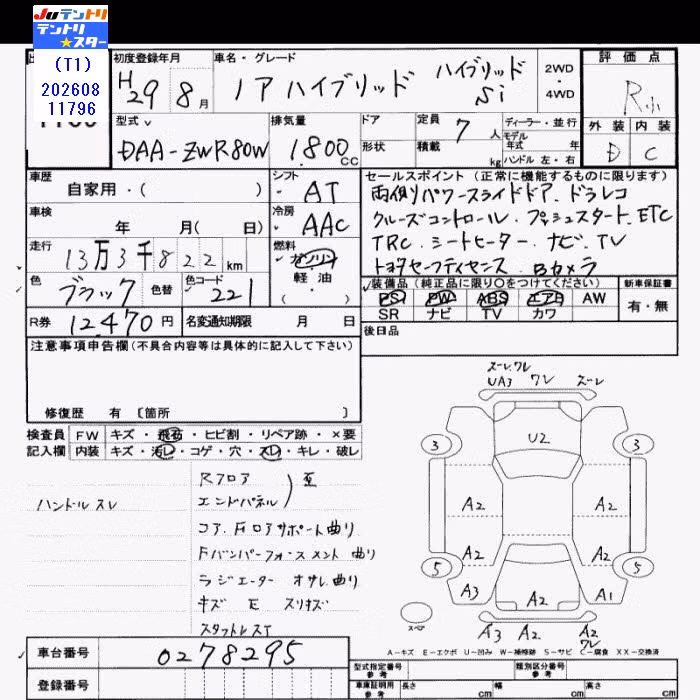 JUテントリ
テントリ
★スター
(T1)
202608
11796
初度登録年月
H29 8月
車名・グレード
ノアハイブリッド ハイブリッド Si
2WD・4WD
評価点
R
外装 内装
D C
型式
DAA-ZWR80W
排気量
1800cc
ドア
形状
定員 7人
積載 kg
ディーラー・並行
モデル年式 年式
ハンドル 左・右
車歴
自家用・( )
シフト AT
車検
年 月( 日)
冷房 AAC
走行
13万3千822km
燃料
ガソリン
軽油
( )
色
ブラック 色替
色コード 221
R券 12470円
名変通知期限 月 日
セールスポイント(正常に機能するものに限ります)
両側パワースライドドア.ドラレコ
クルーズコントロール.プッシュスタート.ETC
TRC.シートヒーター.ナビ.TV
トヨタセーフティセンス.Bカメラ
装備品(純正品に限り○をつけてください)
PS PW ABS エアB AW
SR ナビ TV カワ
新車保証書
有・無
後日品
注意事項申告欄(不具合内容等は具体的に記入して下さい)
修復歴 有 〔箇所 〕
検査員 FW キズ・飛石・ヒビ割・リペア跡・×要
記入欄 内装 キズ・汚レ・コゲ・穴・スレ・キレ・破レ
ハンドルスレ
Rフロア
エンドパネル
コア.Fロアサポート曲り
Fバンパーフォースメント曲り
ラジエーター オサレ曲り
キズ E スリキズ
スタットレスT
ズーレ.ワレ
UA3 ワレ ズーレ
3 U2 3
A2 A2
A2 A2
5 5
A3 A2 A1
スペア
A3 A2 A2
ワレ
A-キズ E-エクボ U-凹み W-補修跡 S-サビ C-腐食 XX-交換済
車台番号 0278295
登録番号
型式指定番号
参考
類別区分番号
参考
車庫証明用
参考
長さ cm 幅 cm 高さ cm